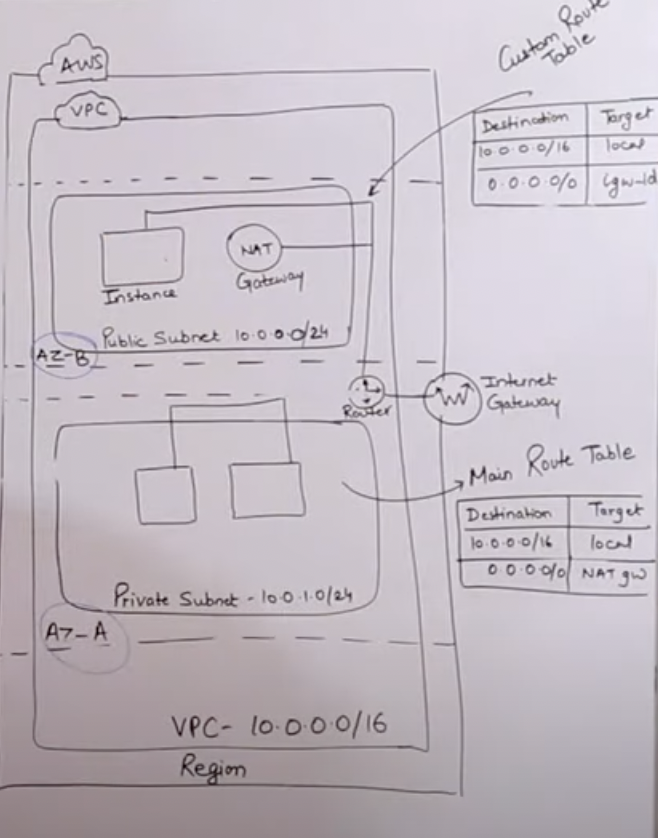 Custom Route
Table
AWS
VPC
Destination Target
10.0.0.0/16 local
0.0.0.0/0 igw-id
NAT
Gateway
Instance
Public Subnet 10.0.0.0/24
AZ-B
Router
Internet
Gateway
Main Route Table
Destination Target
10.0.0.0/16 local
0.0.0.0/0 NAT gw
Private Subnet - 10.0.1.0/24
AZ-A
VPC- 10.0.0.0/16
Region